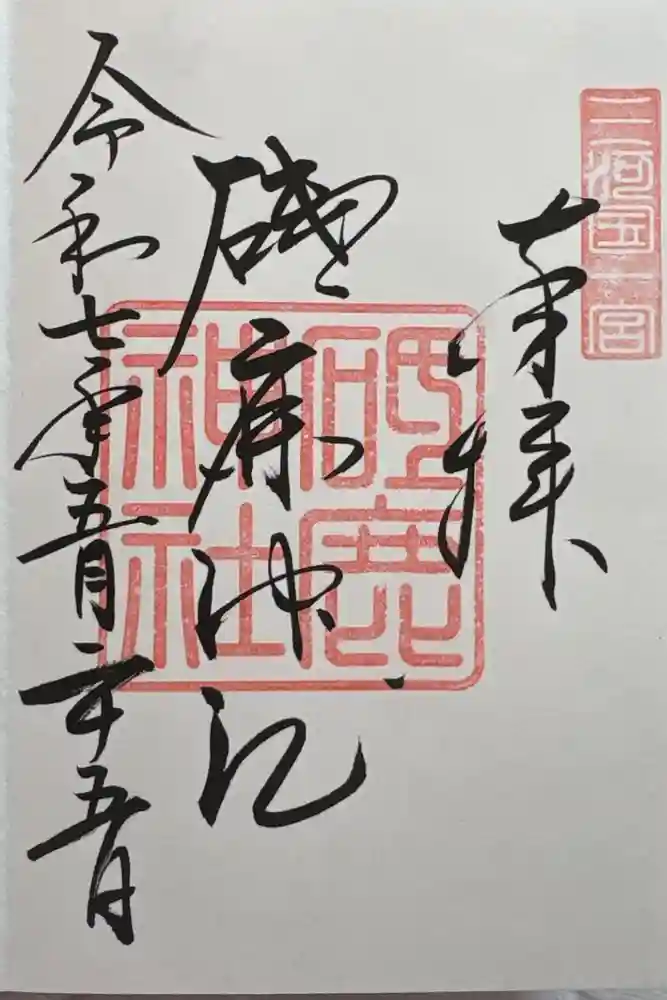 三河国一宮
奉拝
砥鹿神社
砥鹿神社
令和七年五月二十五日